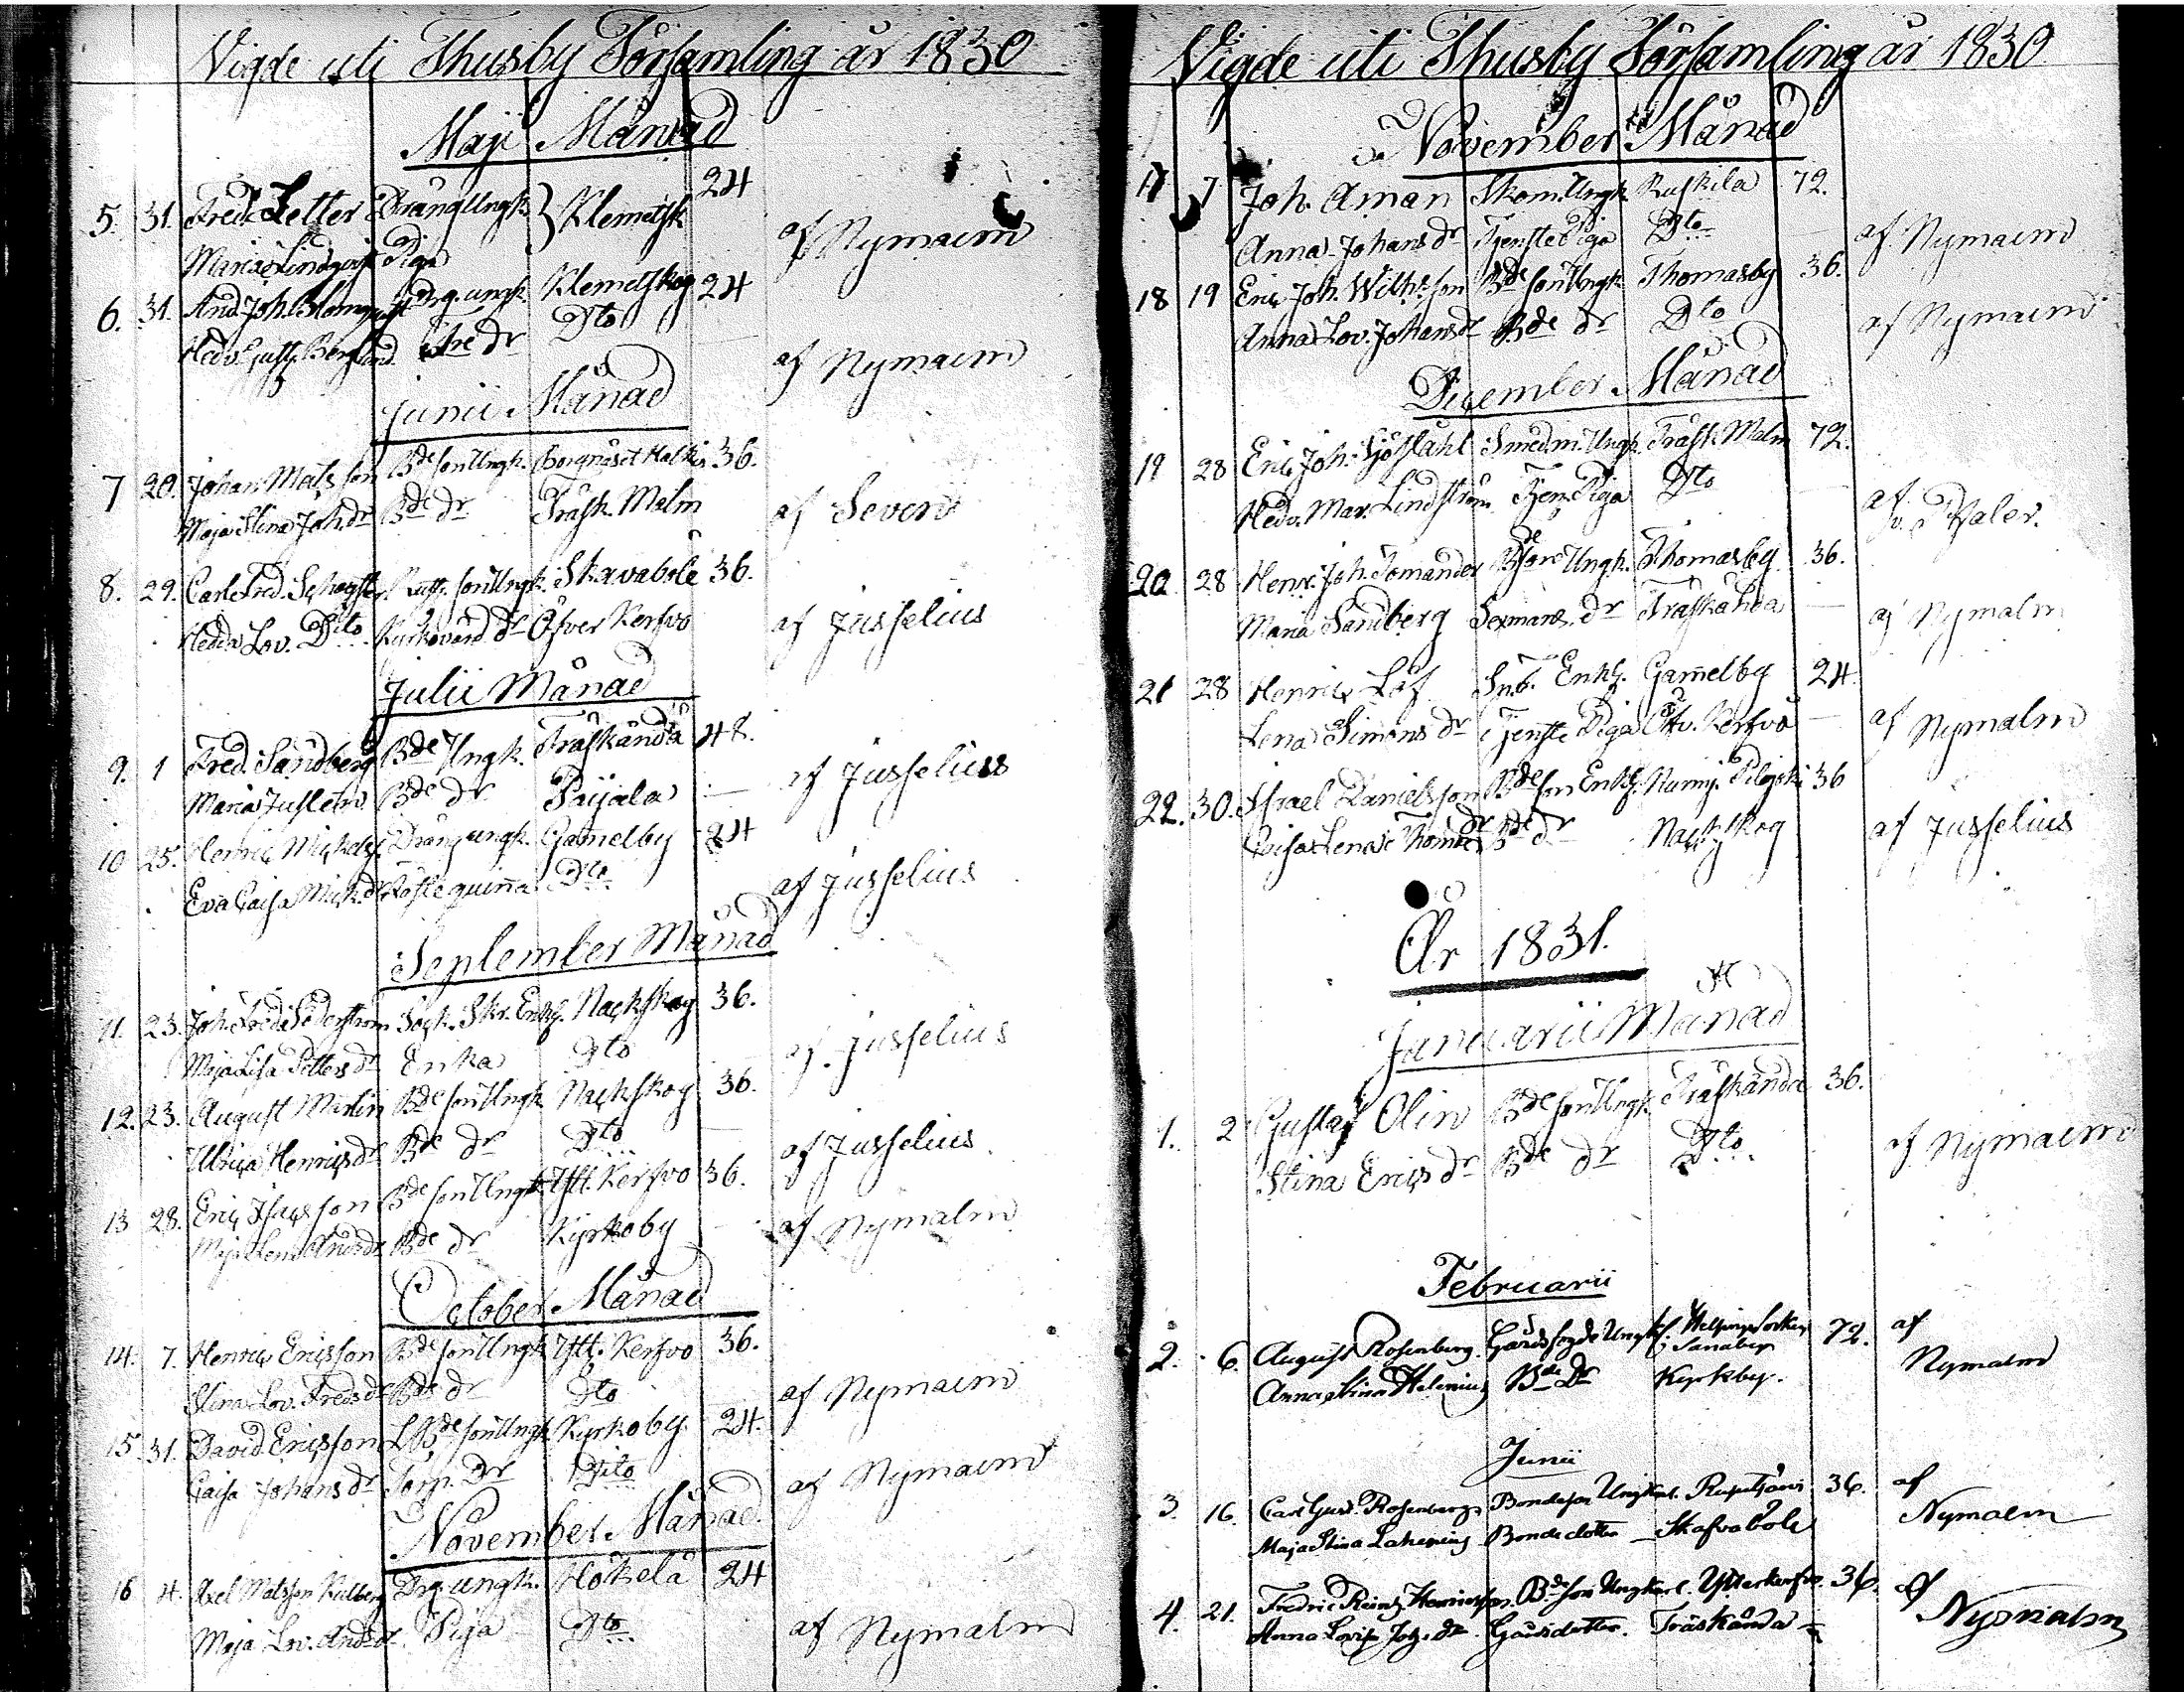 Vigde uti Thusby Församling år 1830
Maji Månad
5. 31. Fred. Letter Dräng Ungk. } Klemetsk 24
Maria Lindqvist Piga af Nymalm
6. 31. And. Joh. Blomqvist Drg. ungk. Klemetskog 24
Hedv. Gust. Berglund dr Dto af Nymalm
Junii Månad
7 20. Johan Mats son Bde son Ungk. Borgnäset 36.
Maja Stina Joh. dr Bde dr Träsk. Malm af Sevon
8. 29. Carl Fred. son Ungk. Skavaböle 36.
Hedda Lov. Dito Kyrkovärd dr Öfver Kerfvo af Jusselius
Julii Månad
9. 1 Fred. Sandberg Bde Ungk. Träskända 48.
Maria Juslin Bde dr Paijala — af Jusselius
10 25. Henric Michelss. Dräng ungk. Gamelby 24
Eva Caisa Mich. dr qvinna Dto af Jusselius
September Månad
11. 23. Joh. Fred. Söderström Sock. Skr. Enkl. Nackskog 36.
Maja Lisa Petters dr Enka Dto af Jusselius
12. 23. August Malin Bde son Ungk Nackskog 36.
Ulrica Henrics dr Bde dr Dto af Jusselius
13 28. Eric Isacsson Bde son Ungk Ytt. Kerfvo 36.
Maja Lena Anders dr Bde dr Kyrkoby — af Nymalm
October Månad
14. 7. Henric Ericsson Bde son Ungk Ytt. Kerfvo 36.
Stina Lov. Freds dr Bde dr Dto af Nymalm
15 31. David Ericsson L. Bde son Ungk Kyrkoby. 24.
Caisa Johans dr Torp. Dr Dito af Nymalm
November Månad
16 4. Axel Matsson Kullberg Drg. ungk. Hökelä 24
Maja Lov. And. dr Piga Dto af Nymalm
Vigde uti Thusby Församling år 1830
November Månad
17 7 Joh. Aman Skom. Ungk. Ruskila 72.
Anna Johans dr Tjenste Piga Dto — af Nymalm
18 19 Eric Joh. Wilh. son Bde son Ungk Thomasby 36.
Anna Lov. Johans dr Bde dr Dto af Nymalm
December Månad
19 28 Eric Joh. Sjöstahl Smedm. Ungk. Träsk. Malm 72.
Hedv. Mar. Lindström Tjen. Piga Dto — af Valev.
20 28 Henr. Joh. Tomander Bde son Ungk. Thomasby 36.
Maria Sandberg Sexmans dr Träskända — af Nymalm
21 28 Henric Löf Enkl. Gamelby 24.
Lena Simons dr Tjenste Piga Öfv. Kerfvo — af Nymalm
22. 30. Israel Danielsson Bde son Enkl. Nurmj. 36
Caisa Lena Thom. dr Bde dr Nackskog af Jusselius
År 1831.
Januarii Månad
1. 2 Gustaf Olin Bde son Ungk Träskända 36.
Stina Erics dr Bde dr Dto af Nymalm
Februarii
2. 6. August Rosenberg Gårdsfogde Ungk. Helsinge Socken 72. af
Anna Stina Helenius Bde Dr Kyrkby. Nymalm
Junii
3. 16. Carl Gust. Rosenberg Bondeson Ungkarl. 36. af
Maja Stina Lahenius Bondedotter — Skafvaböle Nymalm
4. 21. Fredric Reinh. Henricsson Bde son Ungkarl. Ytterkerfvo. 36. af
Anna Lovisa Joh. dr Gårdsdotter. Träskända — Nymalm